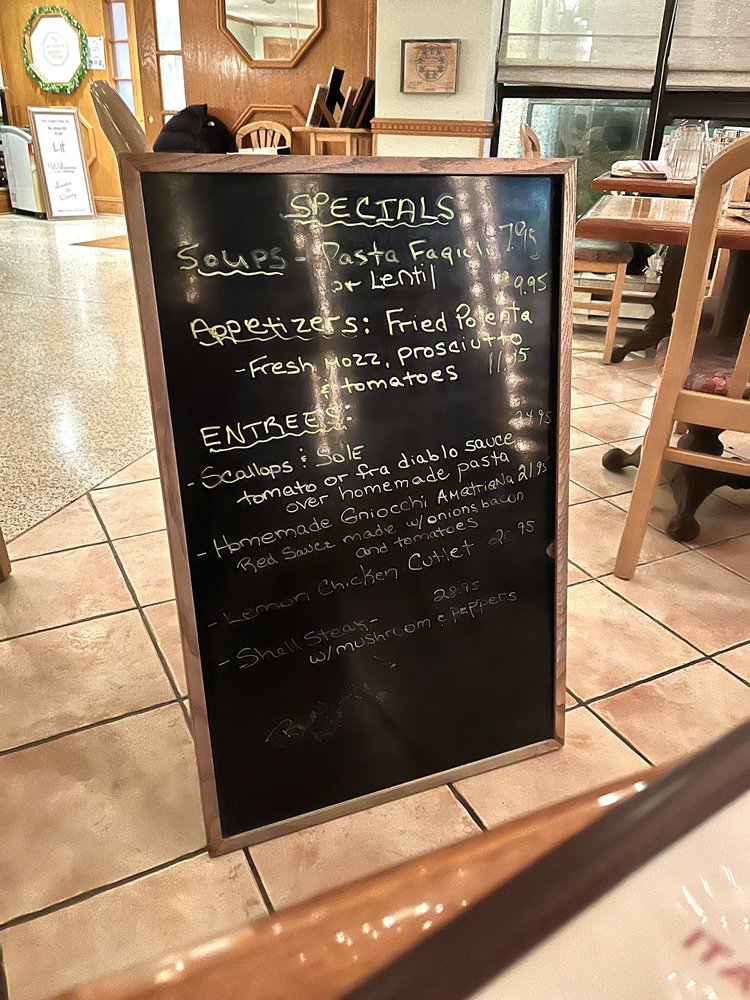 SPECIALS
Soups - Pasta Fagioli 7.95
or Lentil
Appetizers: Fried Polenta 9.95
- Fresh Mozz, prosciutto
& tomatoes 11.95
ENTREES:
- Scallops & Sole 24.95
tomato or fra diablo sauce
over homemade pasta
- Homemade Gniocchi AmatriaNa 21.95
Red Sauce made w/onions, bacon
and tomatoes
- Lemon Chicken Cutlet
- Shell Steak - 28.95
w/mushroom & peppers
ITA